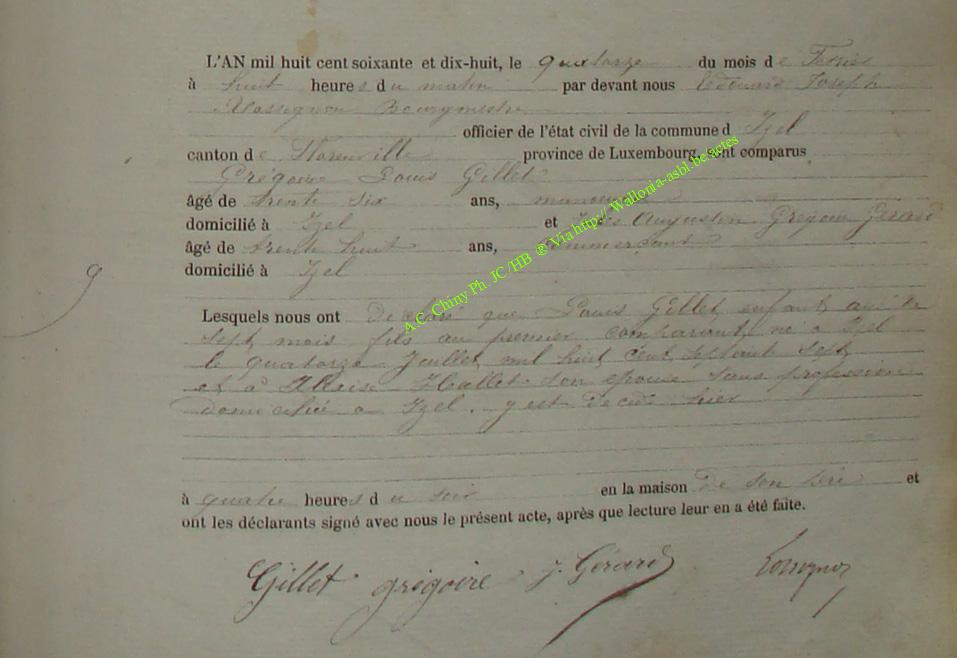 L'AN mil huit cent soixante et dix-huit, le quatorze du mois de Fevrier
à huit heures du matin par devant nous Edouard Joseph
Bourgmestre
officier de l'état civil de la commune d Izel
canton de Florenville province de Luxembourg, sont comparus
Grégoire Louis Gillet
âgé de trente six ans,
domicilié à Izel et Jules Augustin Grégoire Gerard
âgé de trente huit ans, commercant
domicilié à Izel
9
Lesquels nous ont declaré que Louis Gillet, enfant, agé de
sept mois fils au premier comparant, né a Izel
le quatorze Juillet mil huit cent septante sept,
et à son epouse sans profession
domiciliée a Izel, y est decedé hier
à quatre heures du soir en la maison de son père et
ont les déclarants signé avec nous le présent acte, après que lecture leur en a été faite.
Gillet grégoire J. Gérard
A.C. Chiny Ph. JC/HB @ Via http://Wallonia-asbl.be/actes